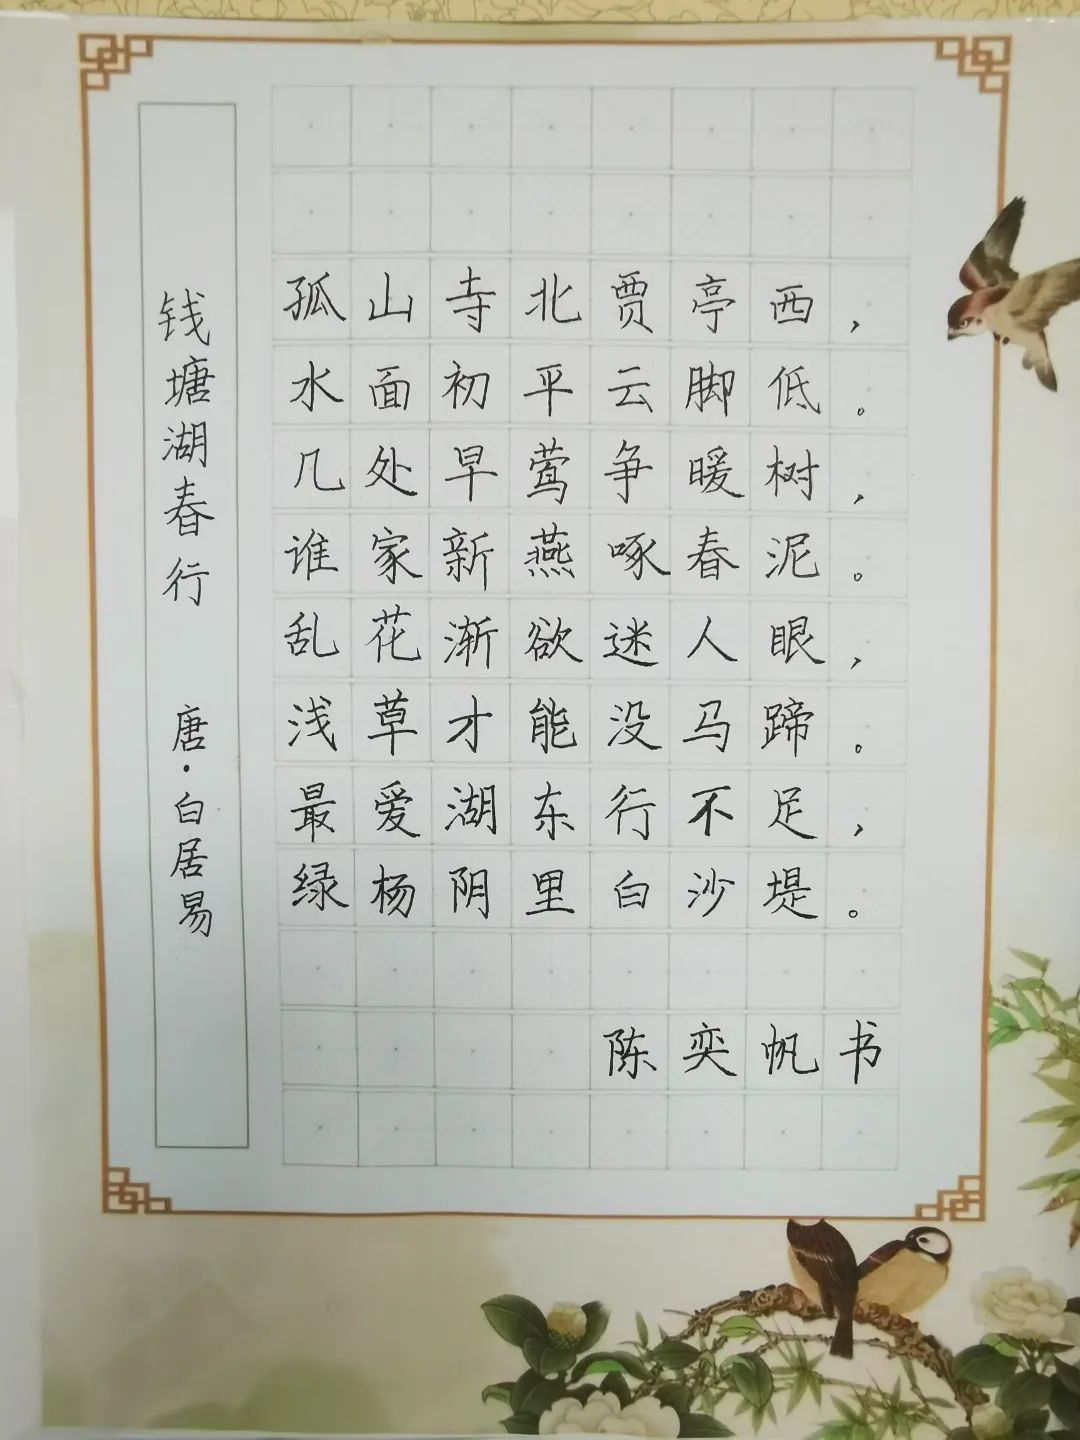 钱塘湖春行 唐·白居易
孤山寺北贾亭西，
水面初平云脚低。
几处早莺争暖树，
谁家新燕啄春泥。
乱花渐欲迷人眼，
浅草才能没马蹄。
最爱湖东行不足，
绿杨阴里白沙堤。
陈奕帆书